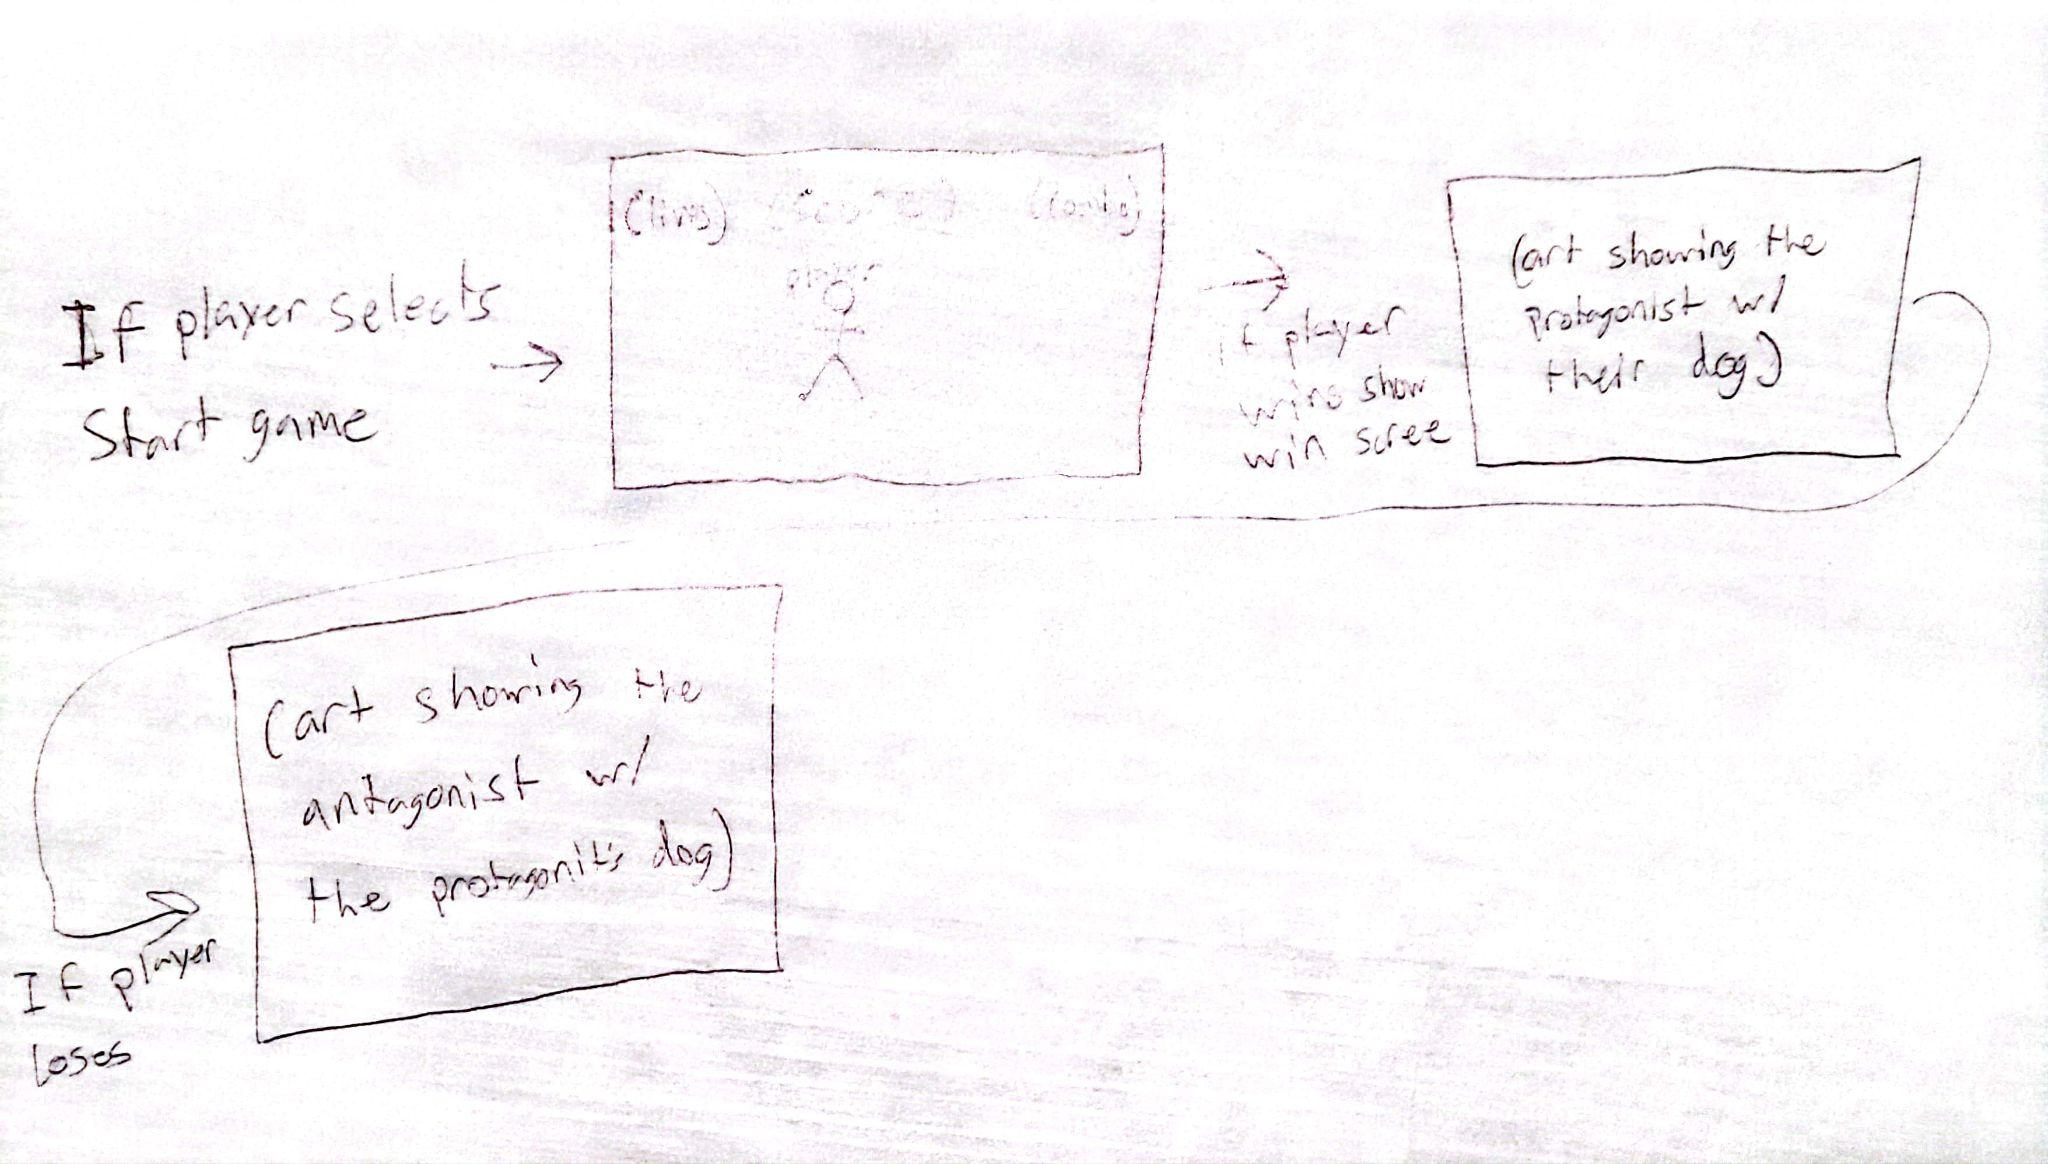 If player selects
Start game
(lives) (score) (combo)
player
if player
wins show
win scree
(art showing the
protagonist w/
their dog)
(art showing the
antagonist w/
the protagonits dog)
If player
loses